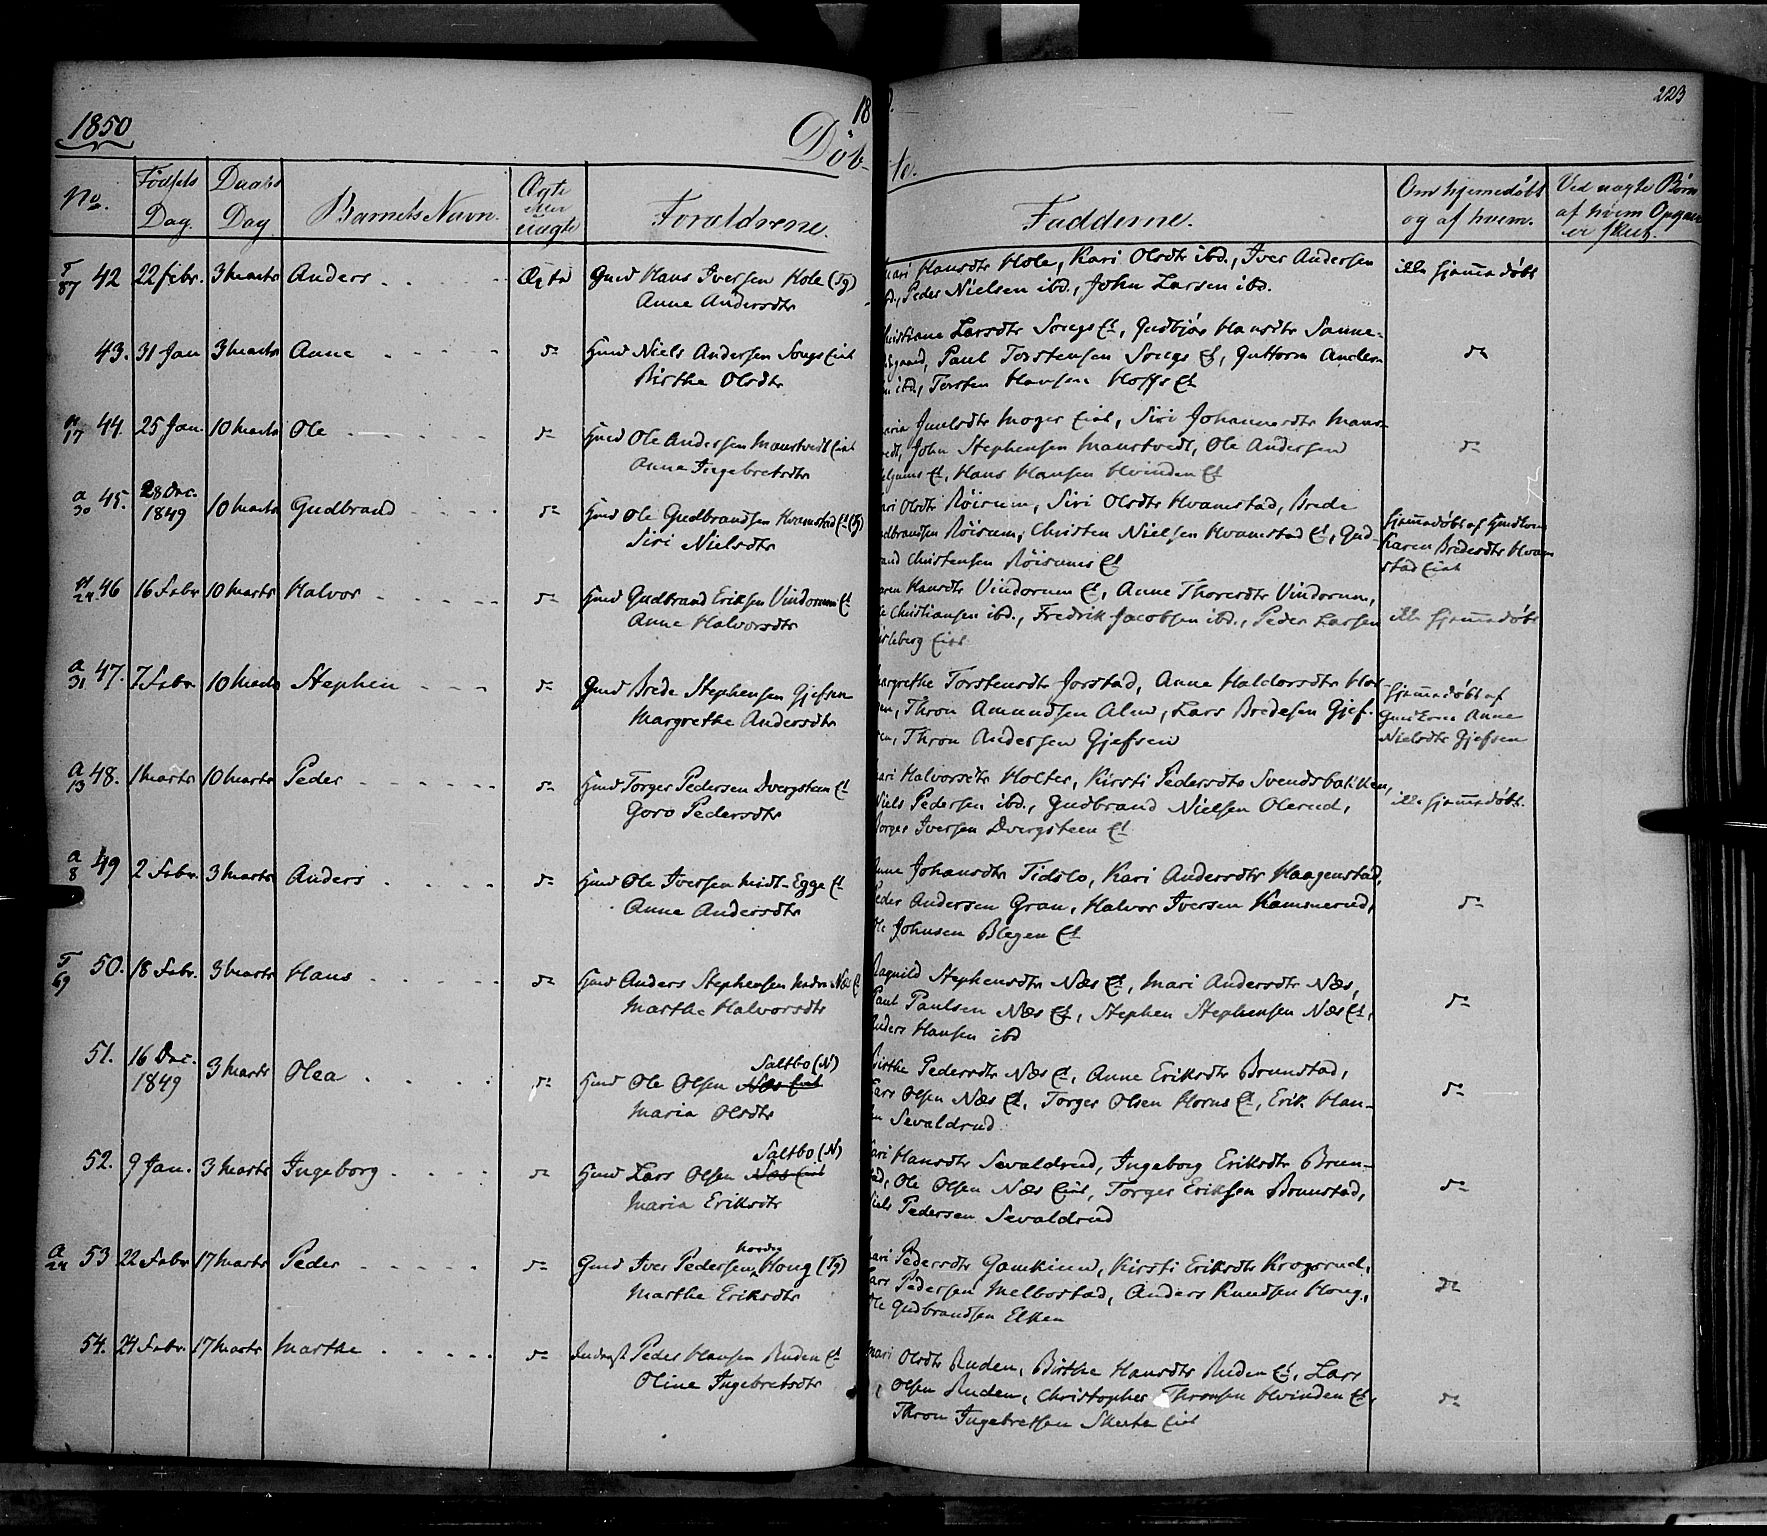 1850
18
0.
223
Döb-
te.
No.
Födsels Dag.
Daabs Dag
Barnets Navn.
Ægte eller uægte
Forældrene.
Fadderne.
Om hjemedöbt og af hvem.
Ved uægte Börn af hvem Opgaven er skeet.
T 87 42 22 Febr. 3 Marts Anders Ægte Gmd Hans Iversen Hole (Tg)
Anne Andersdtr
Hansdtr Hole, Kari Olsdtr ibd., Iver Andersen
ibd., Peder Nielsen ibd., John Larsen ibd.
ikke hjemmedøbt
43. 31 Jan 3 Marts Anne do Hmd Niels Andersen Sougs Eiet
Birthe Olsdtr
Larsdtr Sougs Et, Gudbjør Hansdtr Sanne-
gaard, Paul Torstensen Sougs Et, Guttorm Anders-
ibd., Torsten Hansen Hoffs Et
do
17 44 25 Jan. 10 Marts Ole do Hmd Ole Andersen Manstvedt Eiet
Anne Ingebretsdtr
Moger Eiet, Siri Johannesdtr Mans-
John Stephensen Manstvedt, Ole Andersen
Et, Hans Hansen Hvinden Et
do
a 30 45. 28 Dec. 1849 10 Marts Gudbrand do Hmd Ole Gudbrandsen Hvamstad Et (Tg)
Siri Nielsdtr
Olsdtr Röisum, Siri Olsdtr Hvamstad, Brede
Röisum, Christen Nielsen Hvamstad Et, Gud-
Christensen Röisums Et
Hjemmedøbt af Hmdkone
Karen Bredesdtr Hvam
stad Eiet
24 46 16 Febr 10 Marts Halvor do Hmd Gudbrand Eriksen Vindorum Et
Anne Halvorsdtr
Hansdtr Vindorum Et, Anne Thoresdtr Vindorum,
Christiansen ibd., Fredrik Jacobsen ibd., Peder Larsen
Eiet
ikke hjemmedøbt
a 31 47. 7 Febr. 10 Marts Stephen do Gmd Brede Stephensen Gjefsen
Margrethe Andersdtr
Torstensdtr Jorstad, Anne Haldorsdtr
Thron Amundsen Alm, Lars Bredesen Gjef-
Thron Andersen Gjefsen
Hjemmedøbt af
Gmdkone Anne
Nielsdtr Gjefsen
a 13 48. 1 Marts 10 Marts Peder do Hmd Torger Pedersen Dvergsteen Et
Goro Pedersdtr
Halvorsdtr Holter, Kirsti Pedersdtr Svendsbakken,
Niels Pedersen ibd., Gudbrand Nielsen Olerud,
Iversen Dvergsteen Et
ikke hjemmedøbt
a 8 49 2 Febr. 3 Marts Anders do Hmd Ole Iversen Midt-Egge Et
Anne Andersdtr
Johansdtr Tidslo, Kari Andersdtr Haagenstad,
Peder Andersen Gran, Halvor Iversen Kammerud,
Ole Johnsen Blegen Et
do
T 69 50. 18 Febr. 3 Marts Hans do Hmd Anders Stephensen Nedre Næs Et
Marthe Halvorsdtr
Ragnild Stephensdtr Næs Et, Mari Andersdtr Næs,
Paul Paulsen Næs Et, Stephen Stephensen Næs Et,
Anders Hansen ibd
do
51. 16 Dec. 1849 3 Marts Olea do Hmd Ole Olsen Næs Eiet Saltbo (N)
Maria Olsdtr
Birthe Pedersdtr Næs Et, Anne Eriksdtr Brunstad,
Lars Olsen Næs Et, Torger Olsen Horns Et, Erik Han-
Sevaldrud
do
52. 9 Jan. 3 Marts Ingeborg do Hmd Lars Olsen Næs Eiet Saltbo (N)
Maria Eriksdtr
Hansdtr Sevaldrud, Ingeborg Eriksdtr Brun-
Ole Olsen Næs Eiet, Torger Eriksen Brunstad,
Niels Pedersen Sevaldrud
do
a 53 22 Febr 17 Marts Peder do Gmd Iver Pedersen Nordre Houg (Tg)
Marthe Eriksdtr
Pedersdtr Gamkinn, Kirsti Eriksdtr Krogsrud,
Lars Pedersen Melbostad, Anders Knudsen Houg,
Ole Gudbrandsen Elken
do
54. 24 Febr. 17 Marts Marthe do Inderst Peder Hansen Ruden Et
Oline Ingebretsdtr
Mari Olsdtr Ruden, Birthe Hansdtr Ruden Et, Lars
Olsen Ruden, Christopher Thronsen Hvinden Et,
Thron Ingebretsen Skute Eiet
do